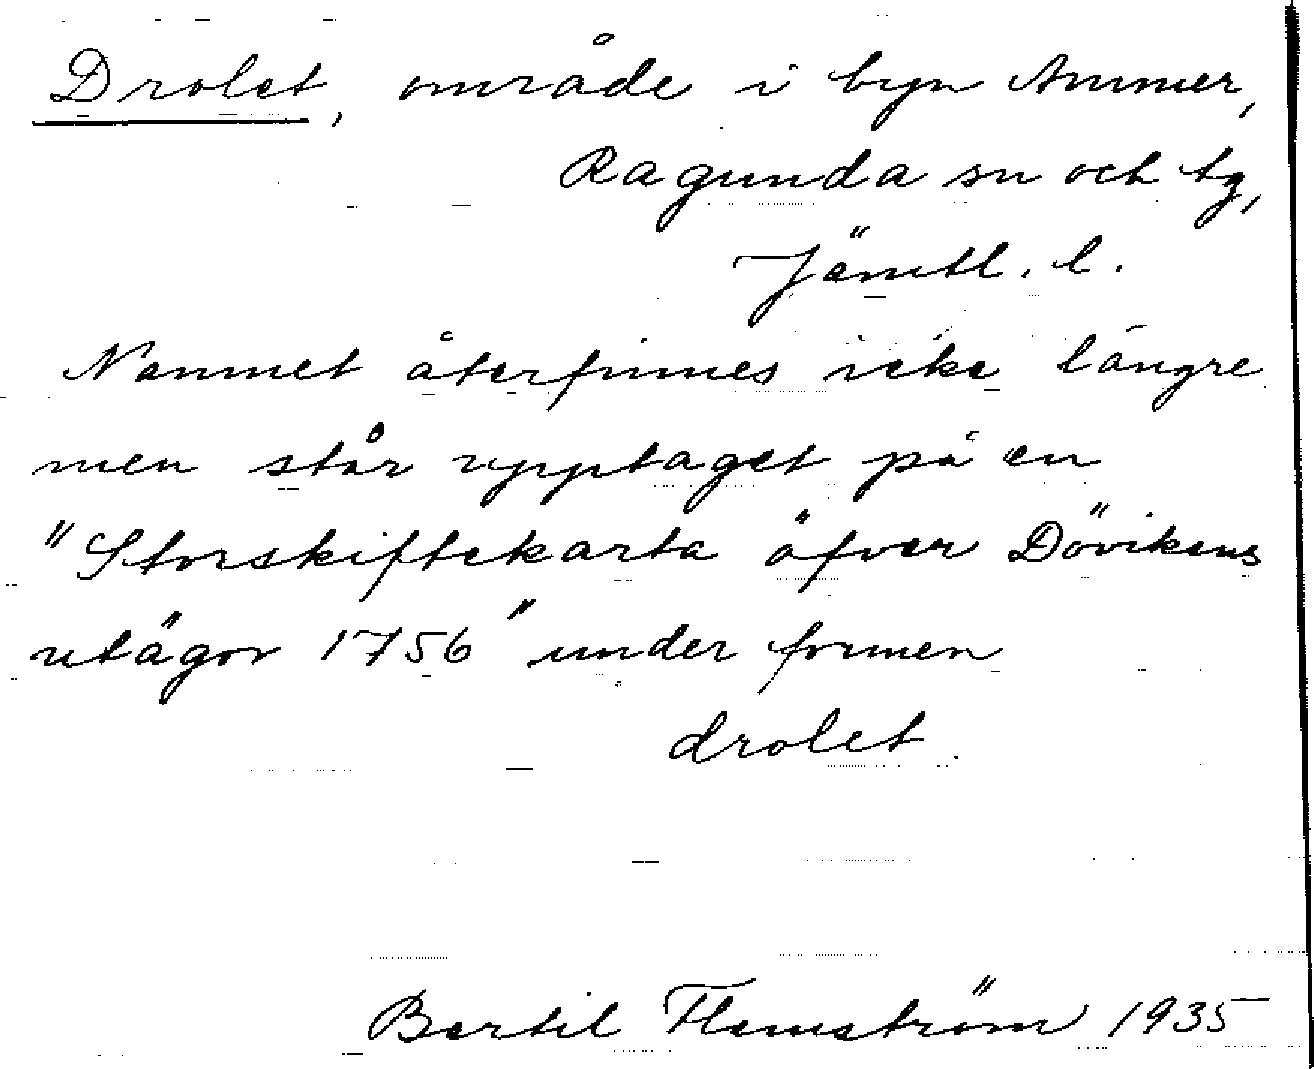 Drolet, område i byn Ammer,
Ragunda sn och tg,
Jämtl. l.
Namnet återfinnes icke längre
men står upptaget på en
"Storskiftekarta öfver Dövikens
utägor 1756" under formen
drolet.
Bertil Flemström 1935